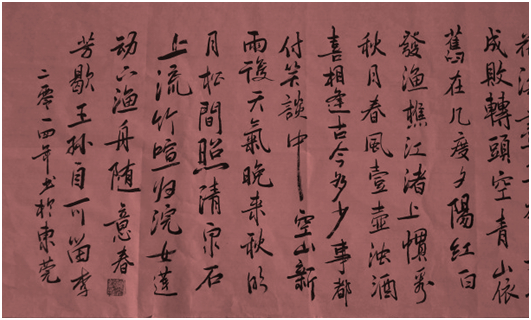 成敗轉頭空青山依
舊在几度夕陽紅白
發漁樵江渚上慣看
秋月春風壹壺浊酒
喜相逢古今多少事都
付笑談中空山新
雨後天氣晚来秋明
月松間照清泉石
上流竹喧归浣女蓮
动下渔舟随意春
芳歇王孙自可留
二零一四年书於東莞